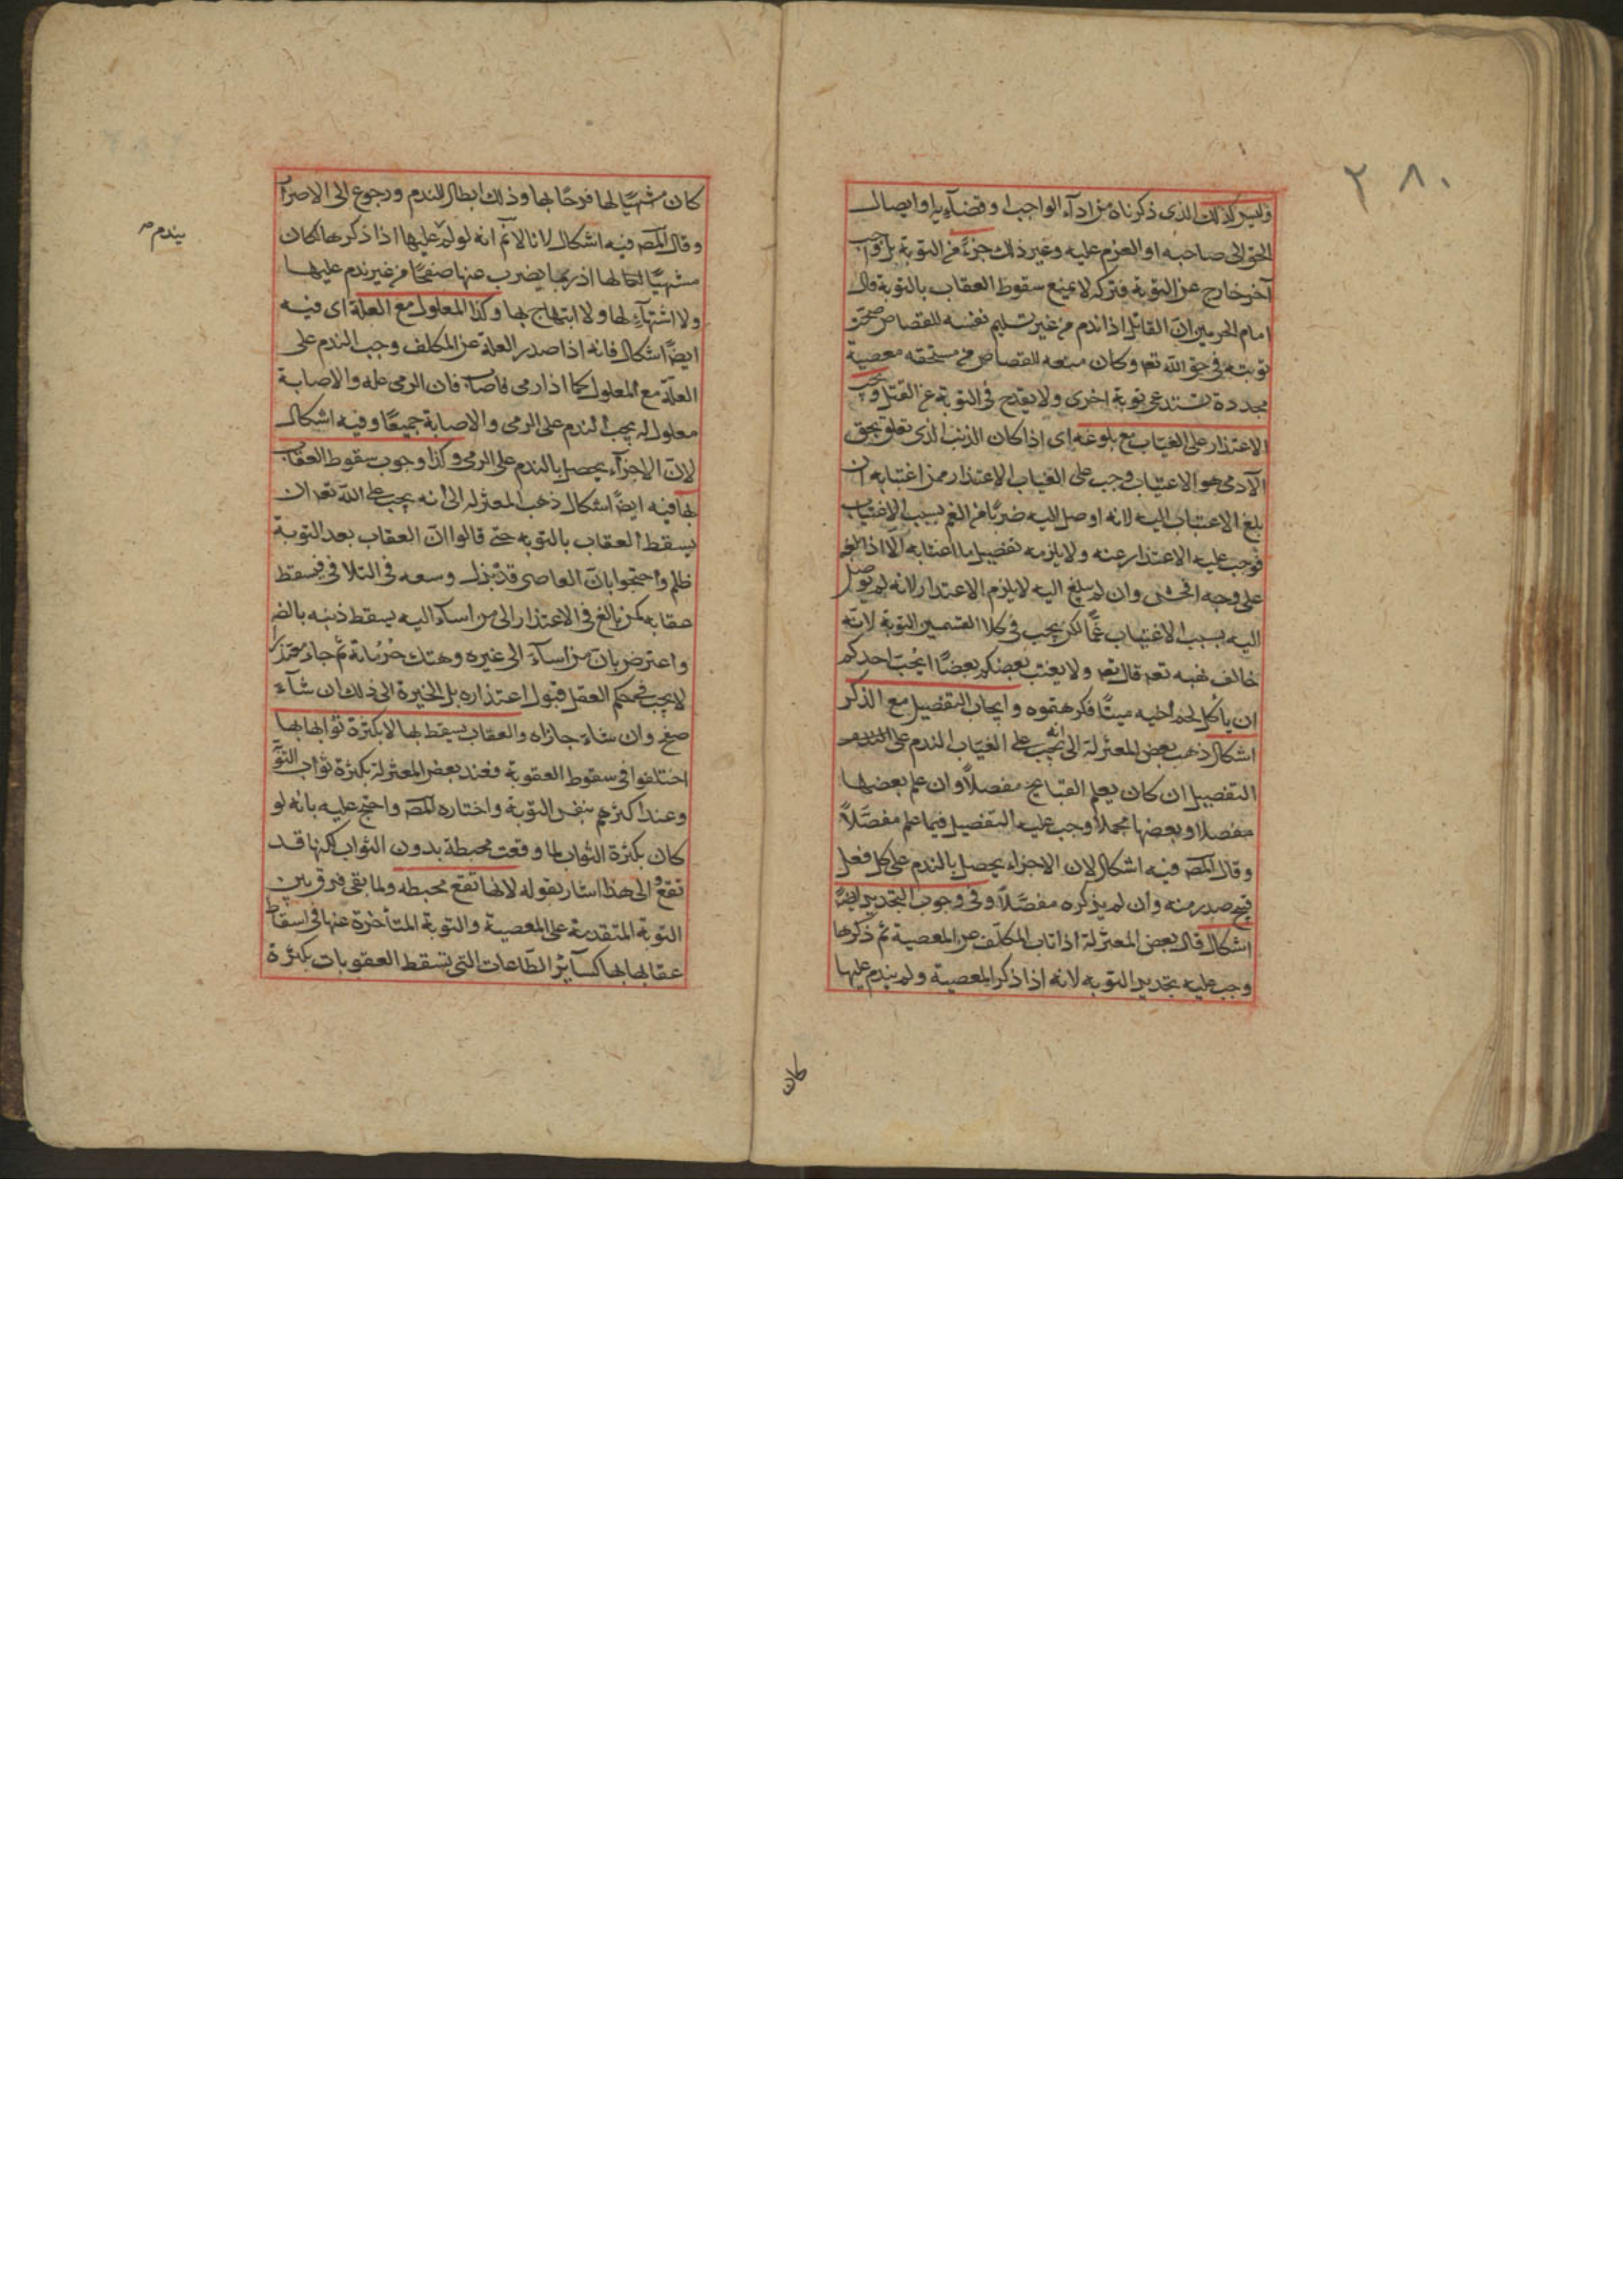 ٢٨٠
وليس كذلك الذى ذكرناه من ادآء الواجب او قضآء به او ايصال
الحق الى صاحبه او العزم عليه وغير ذلك جزءً من التوبة بل واجب
آخر خارج عن التوبة فتركه لا يمنع سقوط العقاب بالتوبة قال
امام الحرمين انّ القاتل اذا ندم من غير تسليم نفسه للقصاص صحّت
توبته فى حق الله تعه وكان منعه للقصاص من مستحقه معصية
مجددة تستدعى توبة اخرى ولا يقدح فى التوبة عن القتل ويجب
الاعتذار على الغيّاب مع بلوغه اى اذا كان الذنب الذى تعلق بحق
الآدمى هو الاغتياب وجب على الغياب الاعتذار ممن اغتابه ان
بلغ الاغتياب اليه لانه اوصل اليه ضربًا من الغم بسبب الاغتياب
فوجب عليه الاعتذار عنه ولا يلزمه تفصيل ما اغتابه الّا اذا بلغه
على وجه افحش وان لم يبلغ اليه لا يلزم الاعتذار لانه لم يوصل
اليه بسبب الاغتياب غمًّا لكن يجب فى كلا القسمين التوبة لانّه
خالف نهيه تعه قال تعه ولا يغتب بعضكم بعضًا ايحبّ احدكم
ان يأكل لحم اخيه ميتًا فكرهتموه وايجاب التفصيل مع الذكر
اشكال ذهب بعض المعتزلة الى انه يجب على الغيّاب الندم على
التفصيل ان كان يعلم القبايح مفصلاً وان علم بعضها
مفصلا وبعضها مجملاً وجب عليه التفصيل فيما علم مفصّلاً
وقال المصّ فيه اشكال لان الاجزاء يحصل بالندم على كل فعل
قبيح صدر منه وان لم يذكره مفصّلاً وفى وجوب التجديد ايضًا
اشكال قال بعض المعتزلة اذا تاب المكلّف عن المعصية ثم ذكرها
وجب عليه تجديد التوبه لانه اذا ذكر المعصية ولم يندم عليها
كان
كان مشتهيًا لها فرحًا بها وذلك ابطال للندم ورجوع الى الاصرار
وقال المصّ فيه اشكال لانا لا نم انه لو لم عليها اذا ذكرها لكان
يندم صح
مشتهيًا لها اذ ربما يضرب عنها صفحًا من غير ندم عليها
ولا اشتهآء لها ولا ابتهاج بها وكذا المعلول مع العلة اى فيه
ايضًا اشكال فانه اذا صدر العلة عن المكلف وجب الندم على
العلة مع المعلول كما اذا رمى فاصاب فان الرمى علة والاصابة
معلول له يجب الندم على الرمى والاصابة جميعًا وفيه اشكال
لانّ الاجزآء يحصل بالندم على الرمى وكذا وجوب سقوط العقاب
بها فيه ايضًا اشكال ذهب المعتزله الى انه يجب على الله تعه ان
يسقط العقاب بالتوبه حتى قالوا انّ العقاب بعد التوبة
ظلم واحتجوا بانّ العاصى قد بذل وسعه فى التلافى فيسقط
عقابه كمن بالغ فى الاعتذار الى من اسآء اليه يسقط ذنبه بالضر
واعترض بانّ من اسآء الى غيره وهتك حرُمُاتة ثم جاء معتذرا
لا يجب فى حكم العقل قبول اعتذاره بل الخيرة الى ذلك ان شآء
صفح وان شاء جازاه والعقاب يسقط بها لا بكثرة ثوابها بها
اختلفوا فى سقوط العقوبة فعند بعض المعتزلة بكثرة ثواب التوبة
وعند اكثرهم بنفس التوبة واختاره المصّ واحتج عليه بانه لو
كان بكثرة الثواب لما وقعت محبطة بدون الثواب لكنها قد
تقع والى هذا اشار بقوله لانها تقع محبطه ولما بقى فرق بين
التوبة المتقدمة على المعصية والتوبة المتأخرة عنها فى اسقاط
عقابها بها كسآئر الطاعات التى تسقط العقوبات بكثرة